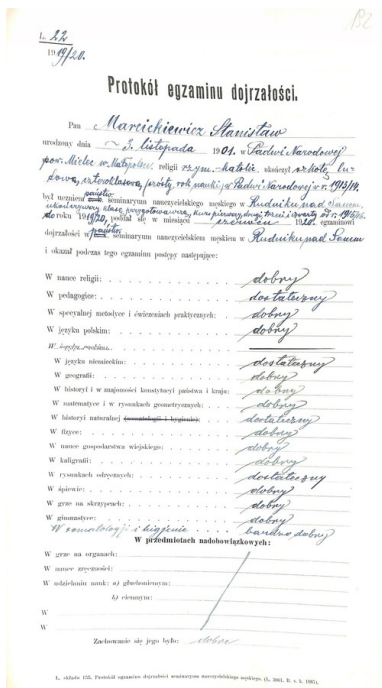 L. 22
1919/20.
Protokół egzaminu dojrzałości.
Pan Marcickiewicz Stanisław
urodzony dnia 3. listopada 1901. w Padwi Narodowej
pow. Mielec w Małopolsce, religii rzym.-katolic. ukończył szkołę lu-
dową, czteroklasową, (próbą rok nauki, w Padwi Narodowej w r. 1913/14.
był uczniem państw. seminaryum nauczycielskiego męskiego w Rudniku nad Sanem,
ukończywszy klasę przygotowawczą, kurs pierwszy, drugi, trzeci i czwarty od r. 1915/16.
do roku 1919/20, poddał się w miesiącu czerwcu 1920. egzaminowi
dojrzałości w państw. seminaryum nauczycielskiem męskiem w Rudniku nad Sanem
i okazał podczas tego egzaminu postępy następujące:
W nauce religii: dobry
W pedagogice: dostateczny
W specyalnej metodyce i ćwiczeniach praktycznych: dobry
W języku polskim: dobry
W języku ruskim:
W języku niemieckim: dostateczny
W geografii: dobry
W historyi i w znajomości konstytucyi państwa i kraju: dobry
W matematyce i w rysunkach geometrycznych: dobry
W historyi naturalnej (somatologii i hygienie): dostateczny
W fizyce: dobry
W nauce gospodarstwa wiejskiego: dobry
W kaligrafii: dobry
W rysunkach odręcznych: dostateczny
W śpiewie: dobry
W grze na skrzypcach: dobry
W gimnastyce: dobry
W somatologji i higjenie bardzo dobry
W przedmiotach nadobowiązkowych:
W grze na organach:
W nauce zręczności:
W udzielaniu nauk: a) głuchoniemym:
b) ciemnym:
W
W
Zachowanie się jego było: dobre
L. składu 155. Protokół egzaminu dojrzałości seminaryum nauczycielskiego męskiego.